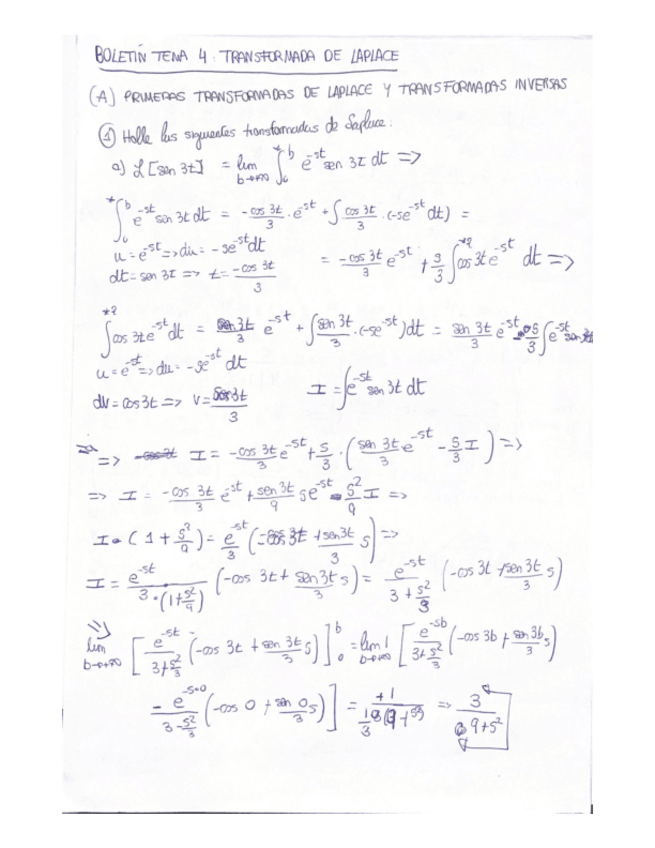 BOLETÍN TEMA 4: TRANSFORMADA DE LAPLACE
(A) PRIMERAS TRANSFORMADAS DE LAPLACE Y TRANSFORMADAS INVERSAS
① Halle las siguientes transformadas de Laplace.
a) L[sen 3t] = lim b→+∞ ∫₀ᵇ e^-st sen 3t dt =>
* ∫₀ᵇ e^-st sen 3t dt = -cos 3t/3 · e^-st + ∫ cos 3t/3 · (-se^-st dt) =
u = e^-st => du = -se^-st dt
= -cos 3t/3 e^-st + s/3 ∫ *2 cos 3t e^-st dt =>
dt = sen 3t => t = -cos 3t/3
*2
∫ cos 3t e^-st dt = sen 3t/3 e^-st + ∫ sen 3t/3 · (-se^-st) dt = sen 3t/3 e^-st - s/3 ∫ e^-st sen 3t
u = e^-st => du = -se^-st dt
dv = cos 3t => v = sen 3t/3
I = ∫ e^-st sen 3t dt
=> I = -cos 3t/3 e^-st + s/3 · (sen 3t/3 e^-st - s/3 I) =>
=> I = -cos 3t/3 e^-st + sen 3t/9 s e^-st - s²/9 I =>
I · (1 + s²/9) = e^-st/3 (-cos 3t + sen 3t/3 s) =>
I = e^-st/3·(1+s²/9) (-cos 3t + sen 3t/3 s) = e^-st/3 + s²/3 (-cos 3t + sen 3t/3 s)
=>
lim b→+∞ [e^-st/3+s²/3 (-cos 3t + sen 3t/3 s)]₀ᵇ = lim b→+∞ [e^-sb/3+s²/3 (-cos 3b + sen 3b/3 s)
- e^-s·0/3-s²/3 (-cos 0 + sen 0/3 s)] = +1 => 3/9+s²